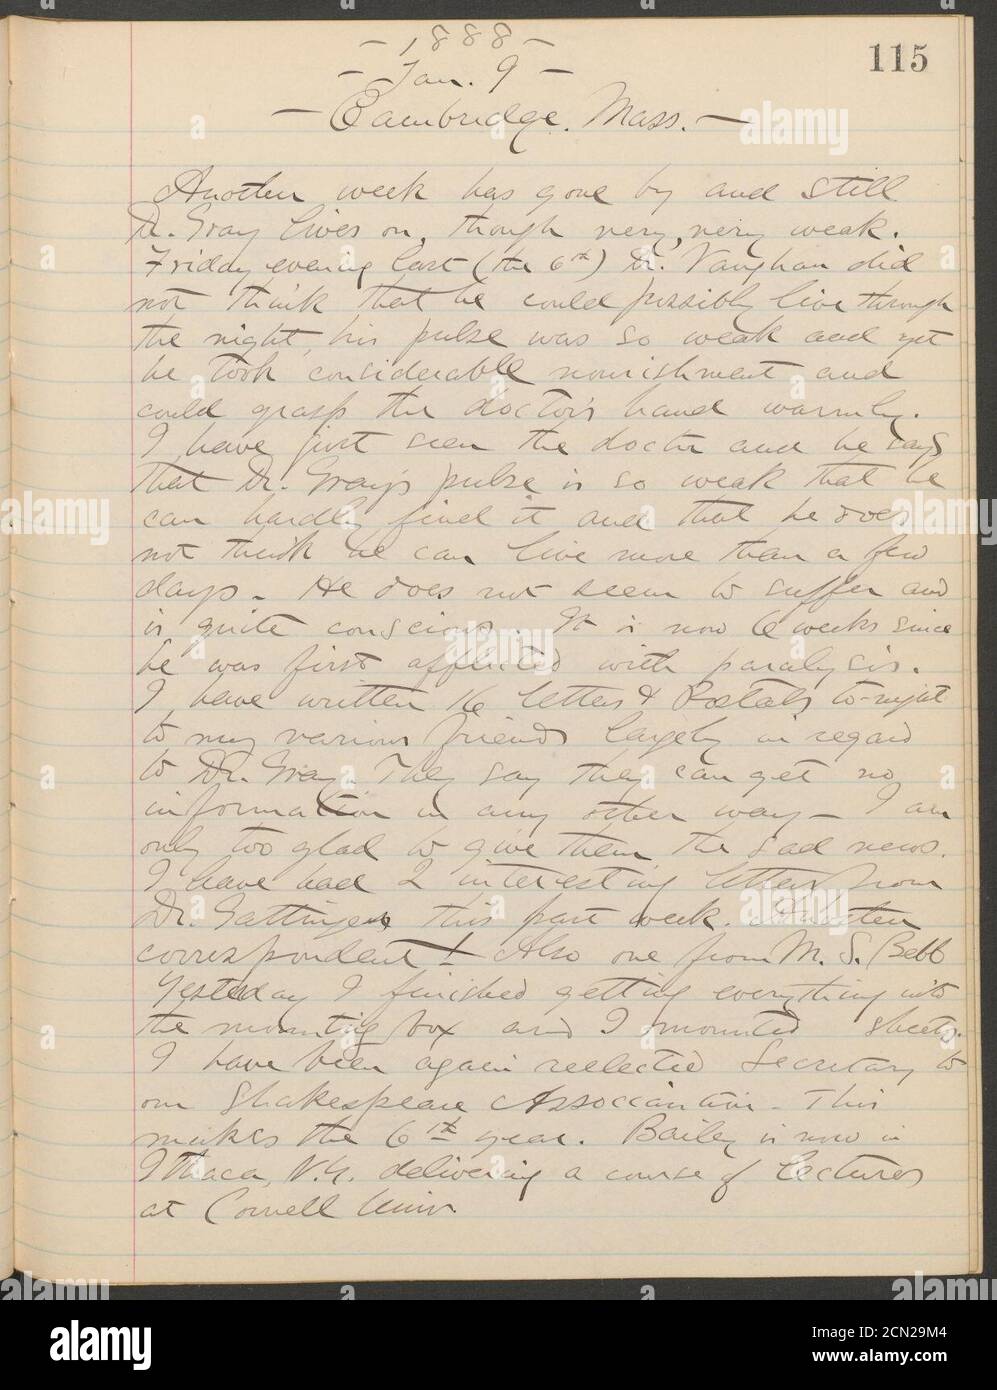 115
- 1888 -
- Jan. 9 -
- Cambridge, Mass. -
Another week has gone by and still
Dr. Gray lives on, though very, very weak.
Friday evening last (the 6th) Dr. Vaughan did
not think that he could possibly live through
the night, his pulse was so weak and yet
he took considerable nourishment and
could grasp the doctor's hand warmly.
I have just seen the doctor and he says
that Dr. Gray's pulse is so weak that he
can hardly find it and that he does
not think he can live more than a few
days - He does not seem to suffer and
is quite conscious. It is now 6 weeks since
he was first afflicted with paralysis.
I have written 16 letters & Postals to-night
to my various friends largely in regard
to Dr. Gray - They say they can get no
information in any other way - I am
only too glad to give them the sad news.
I have had 2 interesting letters from
Dr. Gattinger this past week.
correspondent! Also one from M. S. Bebb
Yesterday I finished getting everything into
the mounting box and I mounted sheets.
I have been again reelected Secretary to
our Shakespeare Association - This
makes the 6th year. Bailey is now in
Ithaca, N.Y. delivering a course of lectures
at Cornell Univ.
alamy
alamy
Image ID: 2CN29M4
www.alamy.com